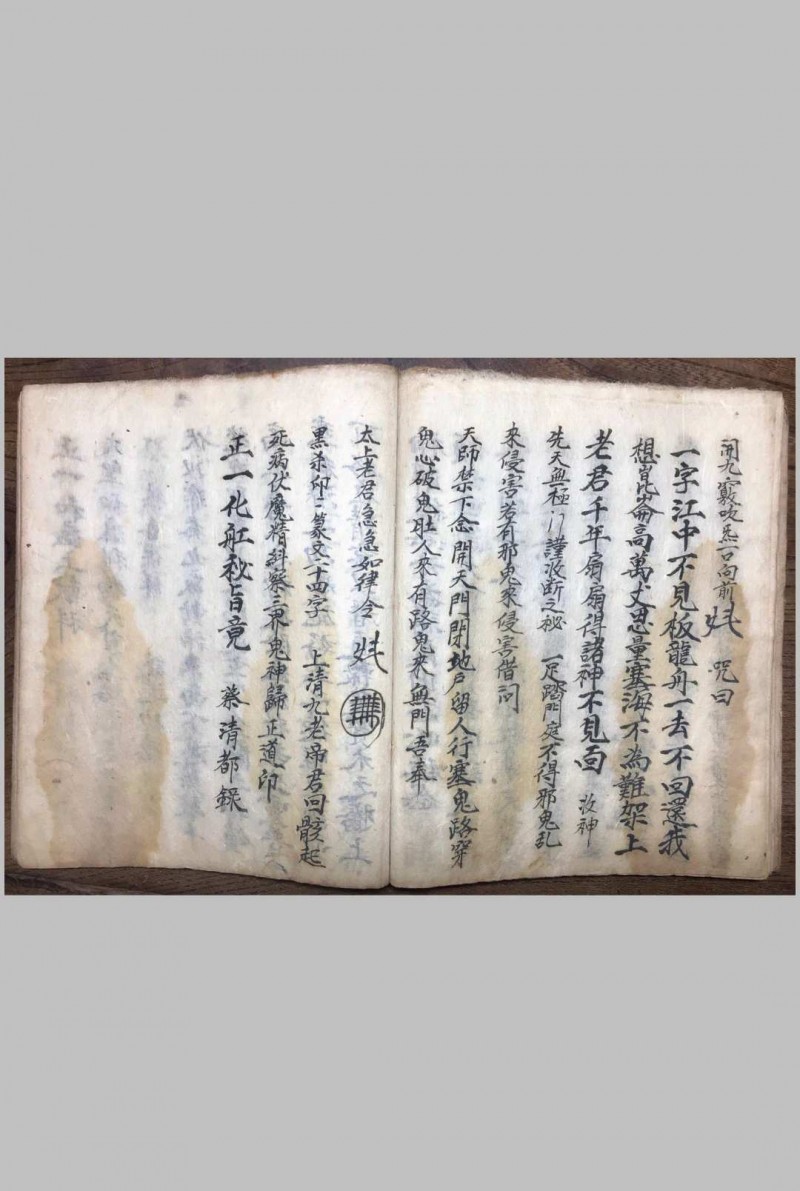 開九竅吹炁一口向前 咒曰
一字江中不見板龍舟一去不回還我
想崑崙高萬丈思量塞海不為難架上
老君千年扇扇得諸神不見面 收神
先天無極 謹收斷之祕 一足踏門庭不得邪鬼乱
來侵害若有邪鬼來侵害借问
天師禁下念開天門閉地户留人行塞鬼路穿
鬼心破鬼肚人來有路鬼來無門吾奉
太上老君急急如律令
黑杀印二篆文二十四字 上清九老帝君回骸起
死病伏魔精斜察三界鬼神歸正道印
正一化舡秘旨竟 蔡清都録